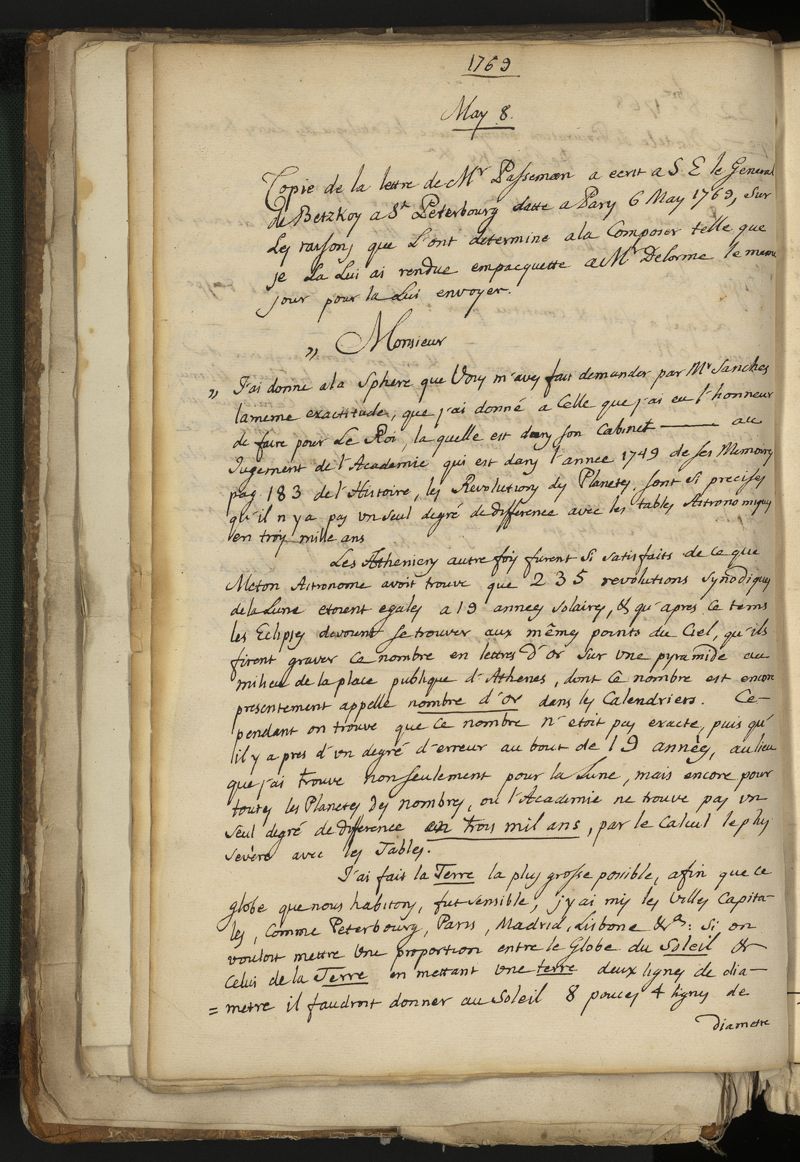 1769
May 8.
Copie de la lettre de Mr Passeman a ecrit a S. E le General
de Betzkoy a St Peterbourg datte a Pary 6 May 1769, sur
les raysons que l'ont determine a la Composer telle que
je la lui ai rendue empacquette a Mr Delorme le meme
jour pour la lui envoyer.
" Monsieur
" J'ai donne a la Sphere que Vous m'aves fait demander par Mr Sanches
la meme exactitude, que j'ai donné a Celle que j'ai eu l'honneur
de faire pour Le Roi, la quelle est dans son Cabinet ——— au
Jugement de l'Academie qui est dans l'annee 1749 de ses Memoires
pag 183 de l'Histoire, les Revolutions des Planetes, sont si precises
qu'il n'y a pas un seul degré de difference avec les tables Astronomiques
en trois mille ans
Les Atheniens autre fois furent si satisfaits de ce que
Meton Astronome avoit trouve que 235 revolutions synodiques
de la Lune etoient egales a 19 annees solaires, & qu'apres ce tems
les Eclipses devoient se trouver aux mêmes points du Ciel, qu'ils
firent graver ce nombre en lettres d'or sur une pyramide au
milieu de la place publique d'Athenes, dont ce nombre est encore
presentement appelle nombre d'or dans les Calendriers. Ce-
pendant on trouve que ce nombre n'etoit pas exacte, puis qu'
il y a pres d'un degré d'erreur au bout de 19 annèes, au lieu
que j'ai trouve non seulement pour la Lune, mais encore pour
toutes les Planetes des nombres, ou l'Academie ne trouve pas un
seul degré de difference en trois mil ans, par le Calcul le plus
sevère avec les Tables.
J'ai fait la Terre la plus grosse possible, afin que ce
globe que nous habitons, fut sensible, j'y ai mis les Villes Capita-
les, comme Peterbourg, Paris, Madrid, Lisbone &a: si on
vouloit mettre une proportion entre le Globe du Soleil &
Celui de la Terre en mettant une terre deux lignes de dia-
= metre il faudroit donner au Soleil 8 pouces 4 lignes de
diametre